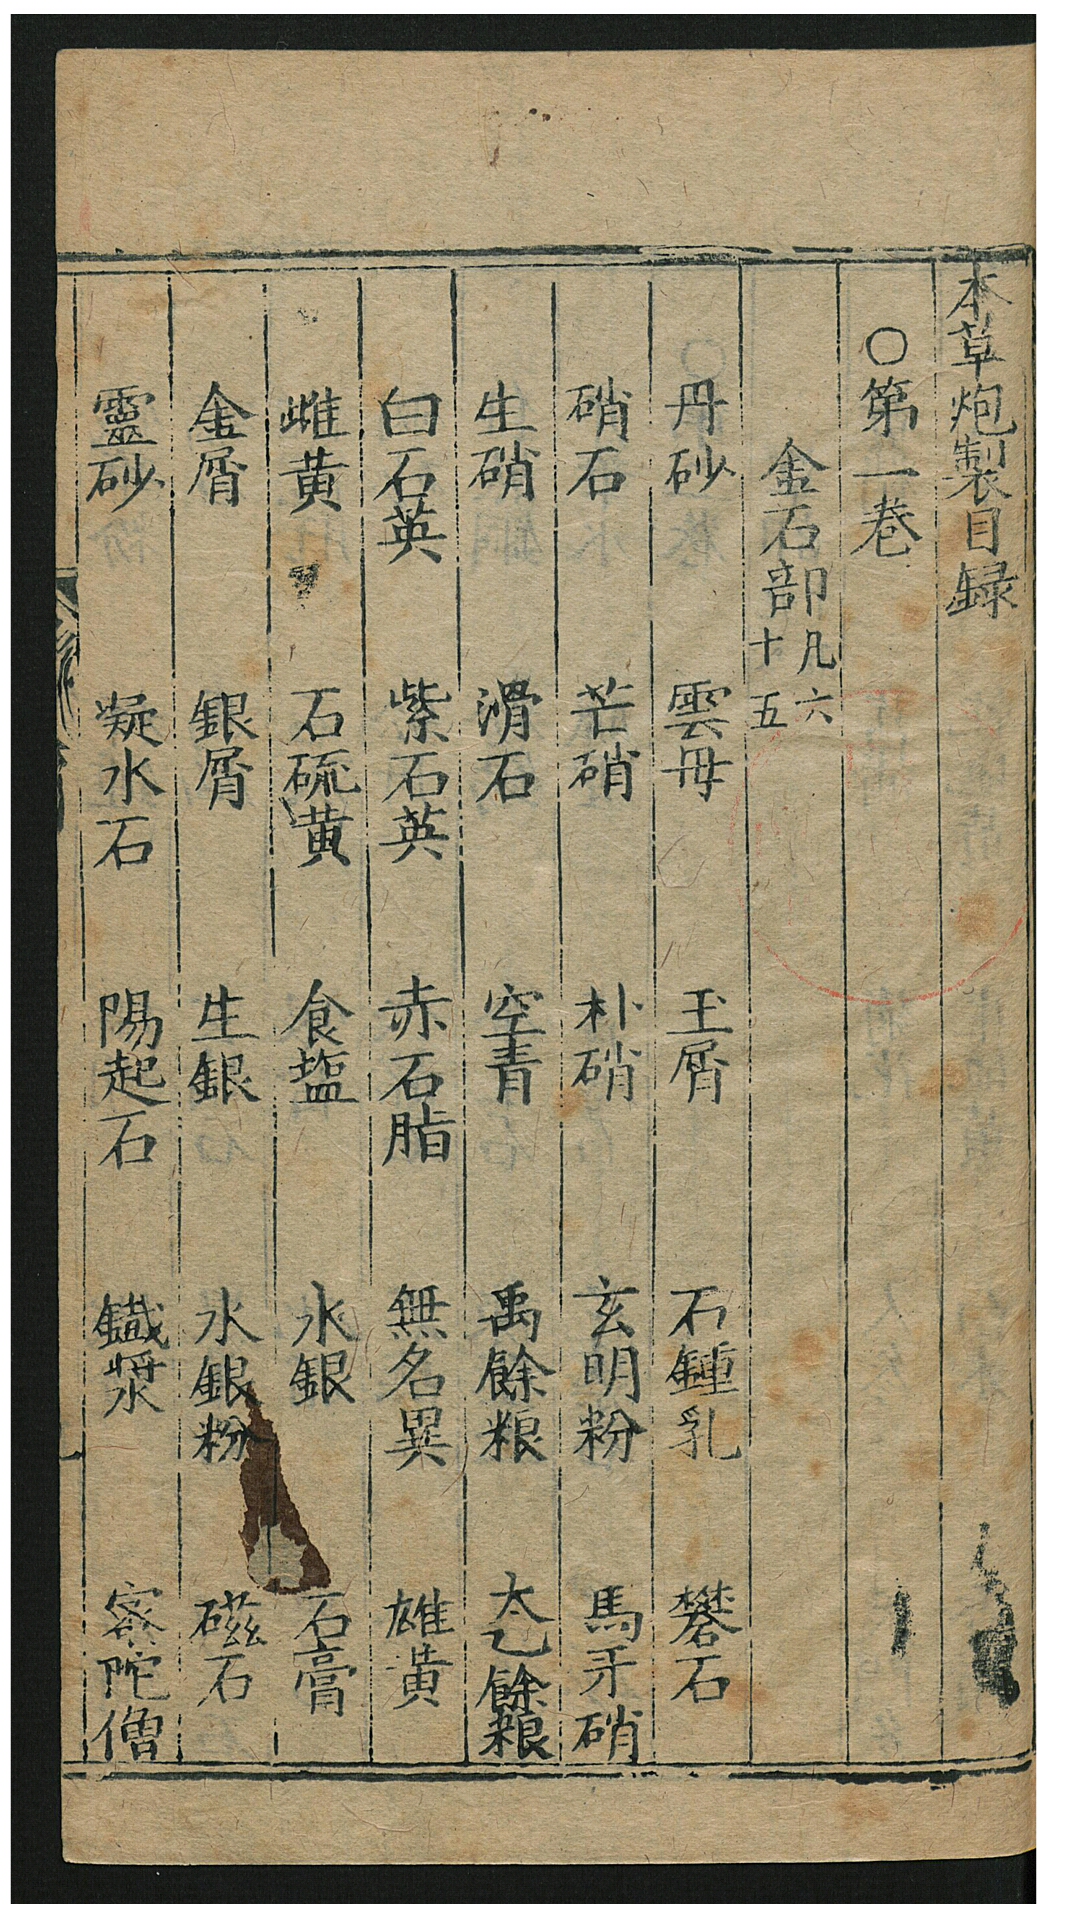 本草炮製目録
○第一巻
金石部凡六十五
丹砂 雲母 玉屑 石鍾乳 礬石
硝石 芒硝 朴硝 玄明粉 馬牙硝
生硝 滑石 空青 禹餘粮 太乙餘粮
白石英 紫石英 赤石脂 無名異 雄黄
雌黄 石硫黄 食塩 水銀 石膏
金屑 銀屑 生銀 水銀粉 磁石
靈砂 凝水石 陽起石 鐵漿 密陀僧